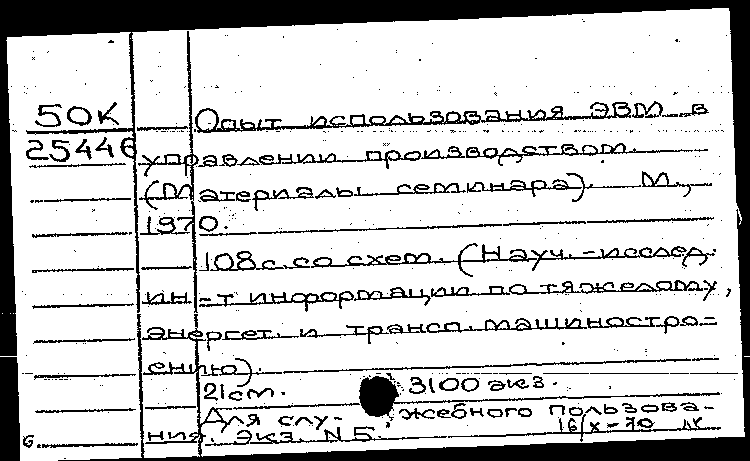 50К
25446
Опыт использования ЭВМ в
управлении производством.
(Материалы семинара). М.,
1970.
108 с. со схем. (Науч.-исслед.
ин-т информации по тяжелому,
энергет. и трансп. машиностро-
ению).
21 см. 3100 экз.
Для служебного пользова-
ния. Экз. N 5.
16/X-70
б.